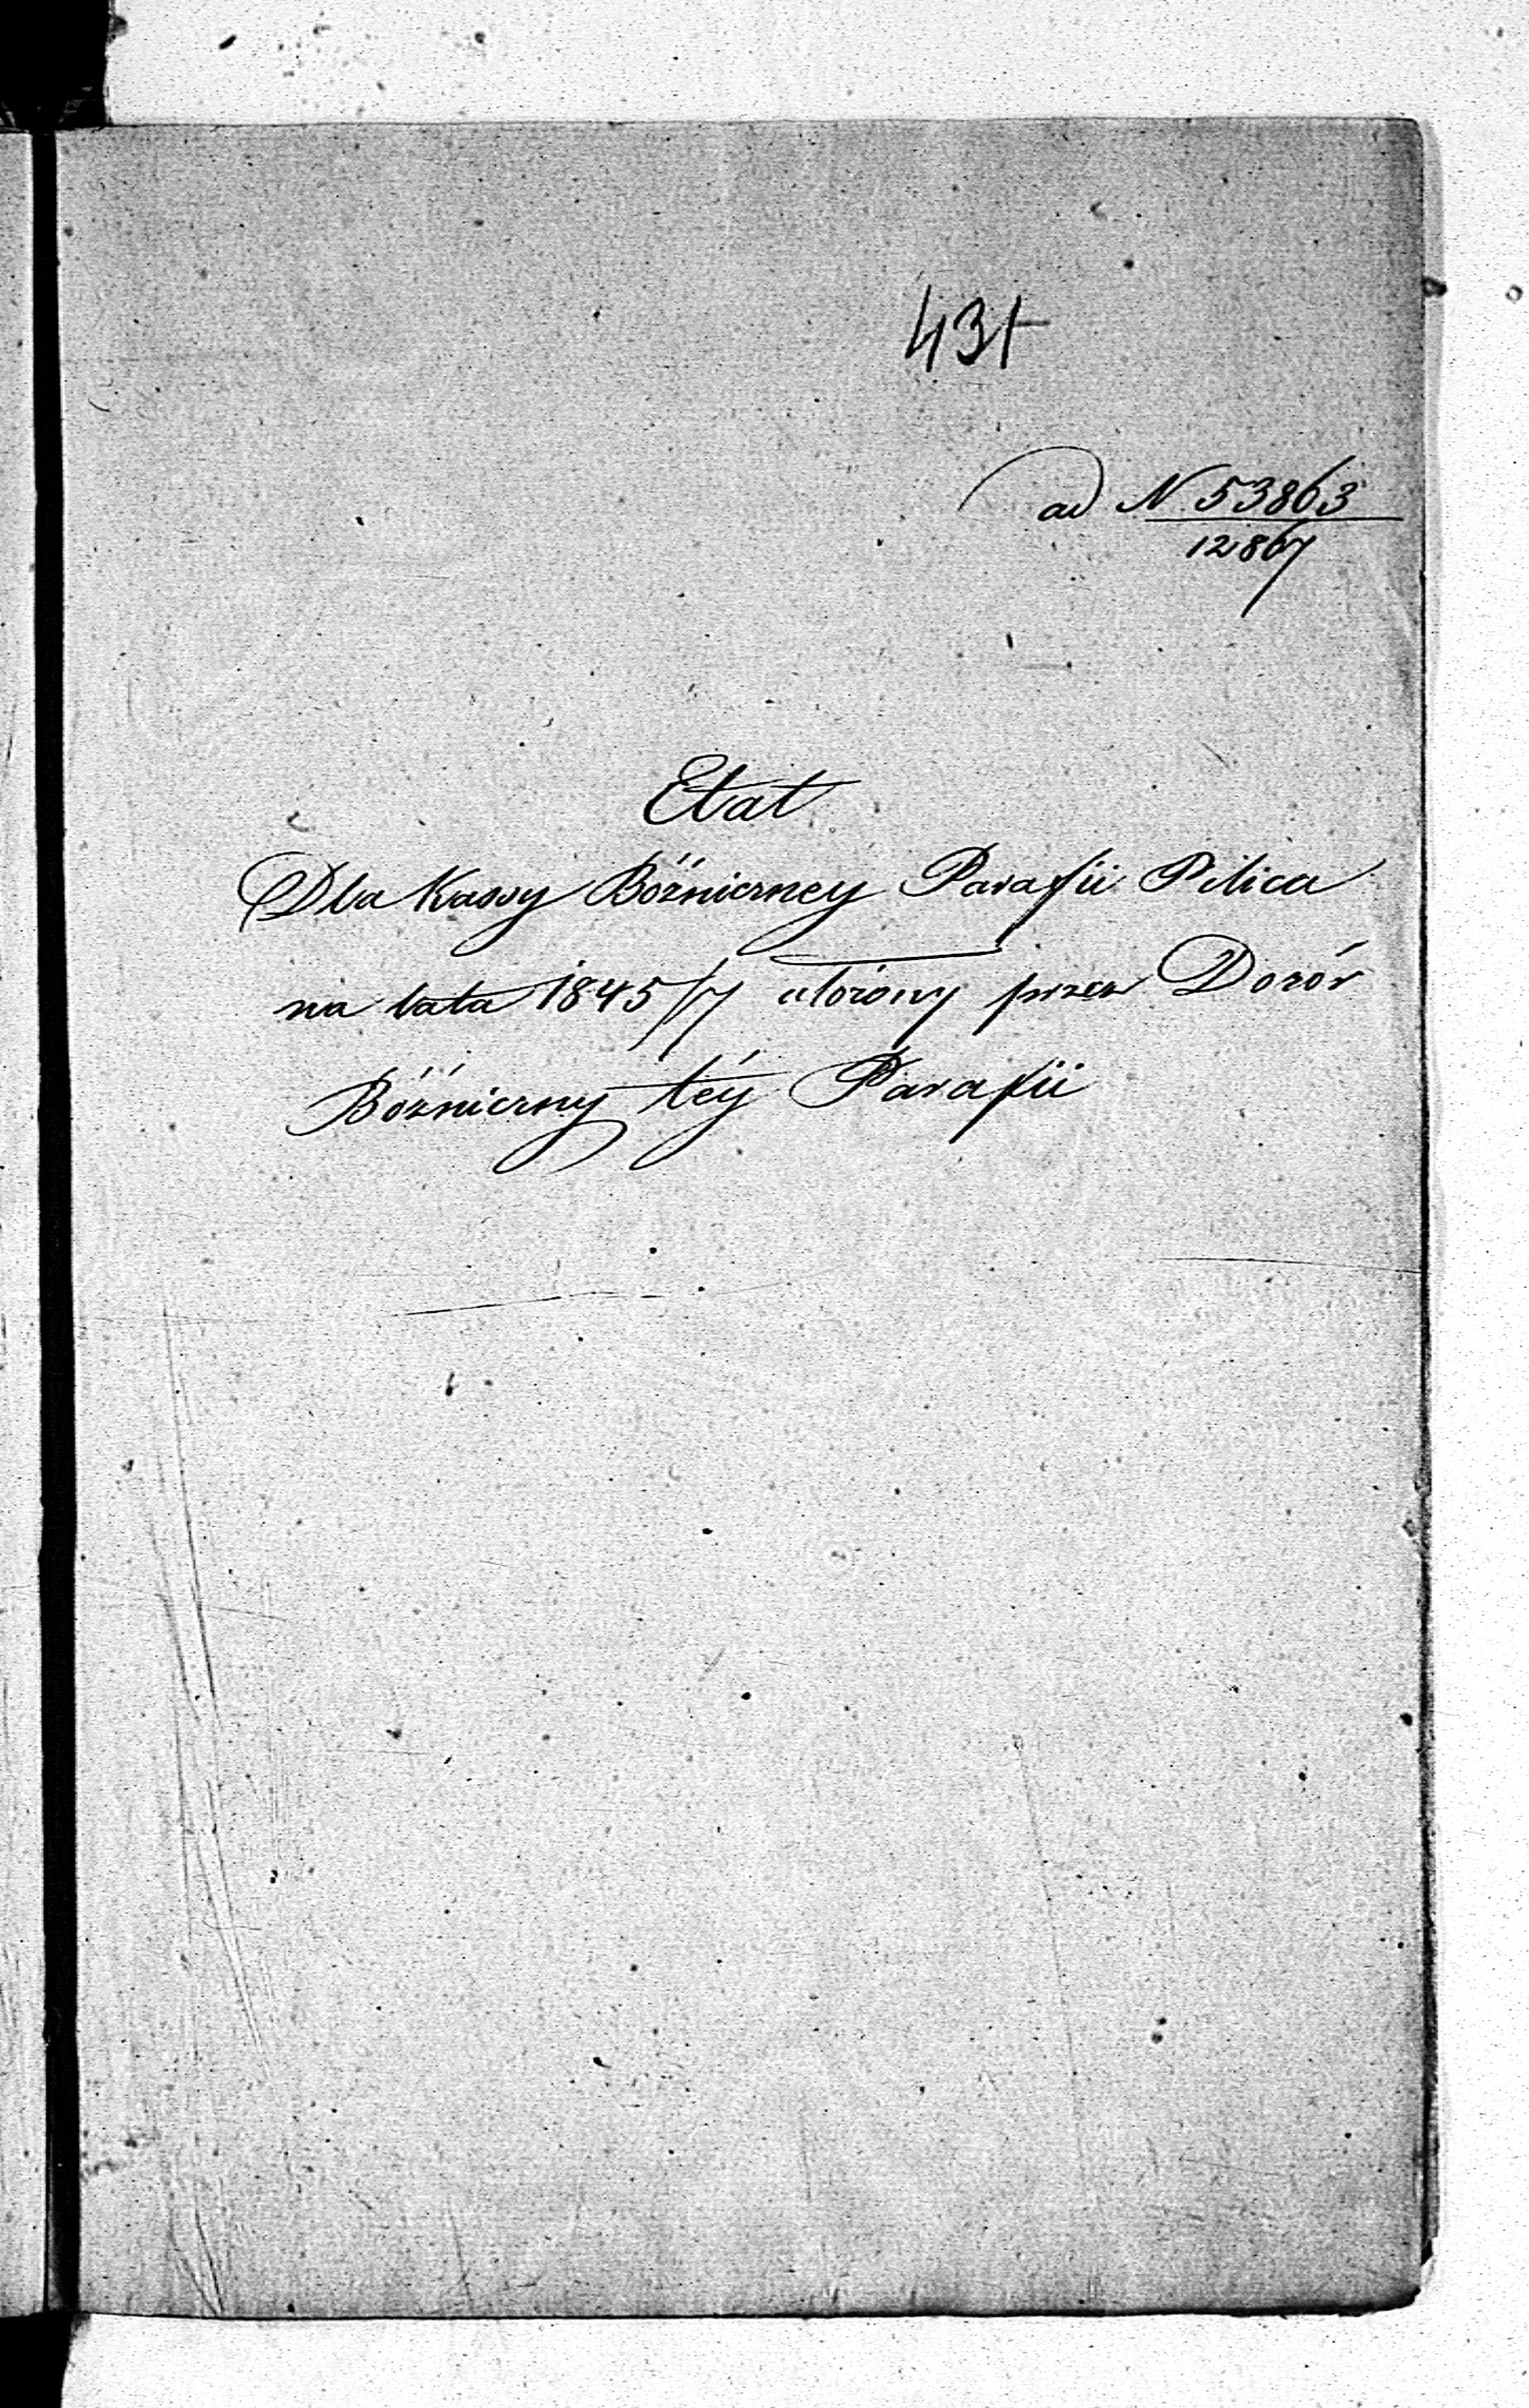 431
ad N. 53863
12867
Etat
Dla Kassy Bóźniczney Parafii Pilica
na lata 1845/7 ułożony przez Dozór
Bóźniczny téy Parafii